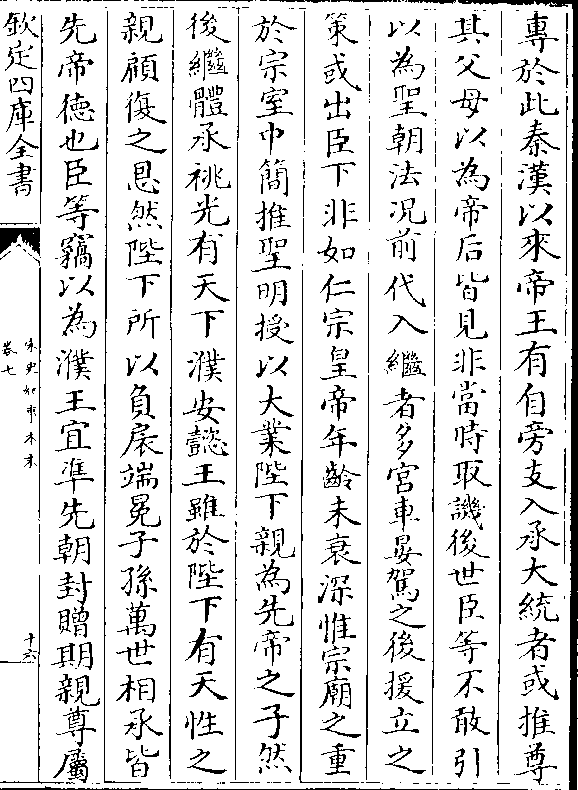 專於此秦漢以來帝王有自旁支入承大統者或推尊
其父母以為帝后皆見非當時取譏後世臣等不敢引
以為聖朝法况前代入繼者多宮車晏駕之後援立之
策或出臣下非如仁宗皇帝年齡未衰深惟宗廟之重
於宗室中簡推聖明授以大業陛下親為先帝之子然
後繼體承祧光有天下濮安懿王雖於陛下有天性之
親顧復之恩然陛下所以負扆端冕子孫萬世相承皆
先帝德也臣等竊以為濮王宜準先朝封贈期親尊屬
欽定四庫全書
宋史紀事本末
卷七
十六